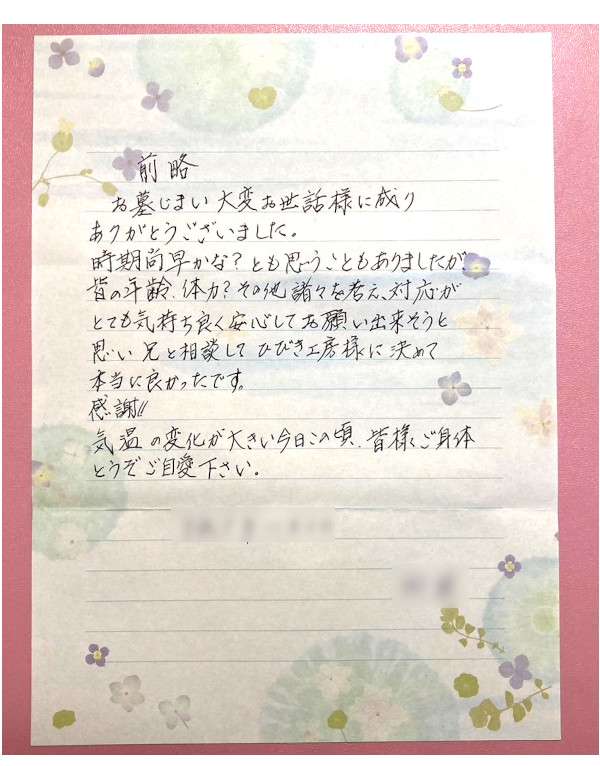 前略
お墓じまい 大変お世話様に成り
ありがとうございました。
時期尚早かな?とも思うこともありましたが、
皆の年齢、体力?その他 諸々を考え、対応が
とても気持ち良く安心してお願い出来そうと
思い 兄と相談して ひびき工房様に決めて
本当に良かったです。
感謝!!
気温の変化が大きい今日この頃、皆様ご身体
どうぞご自愛下さい。